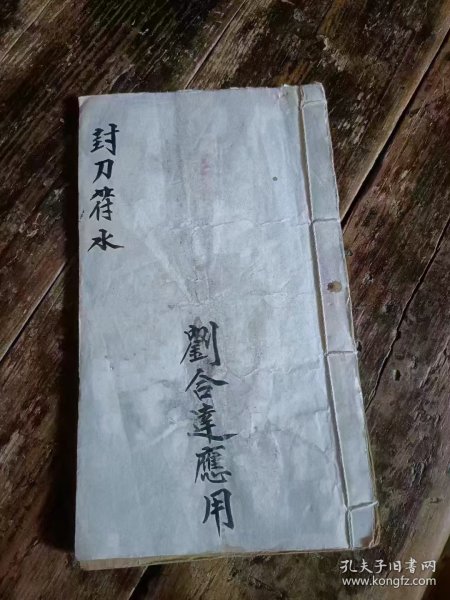 封刀符水
劉合達應用
孔夫子旧书网
www.kongfz.com